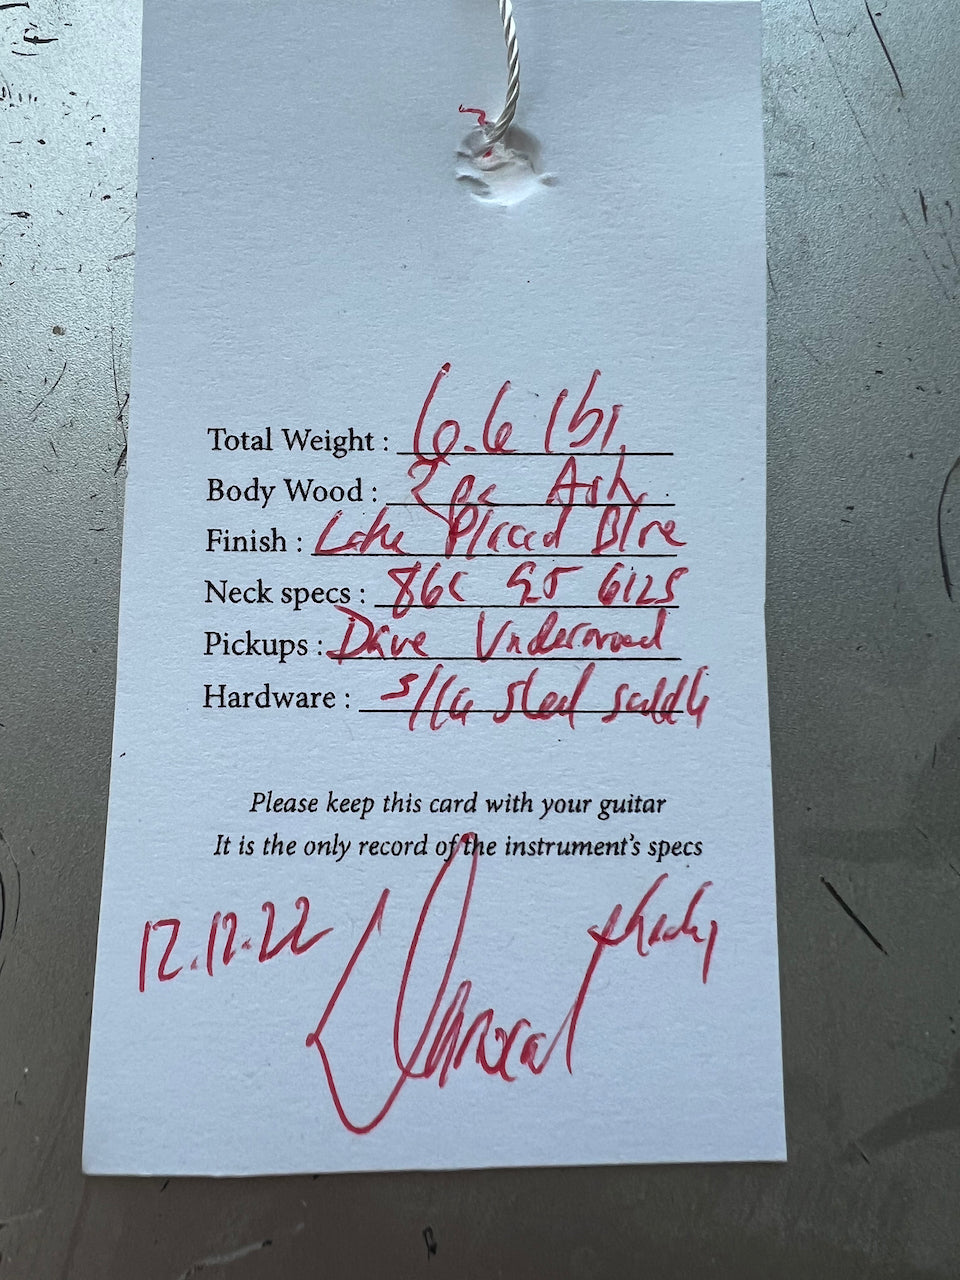 Total Weight : 6.6 lbs.
Body Wood : 2 pc Ash
Finish : Lake Placid Blue
Neck specs : 86C 9.5 6125
Pickups : Dave Underwood
Hardware : 5/16 steel saddle
Please keep this card with your guitar
It is the only record of the instrument's specs
12.12.22